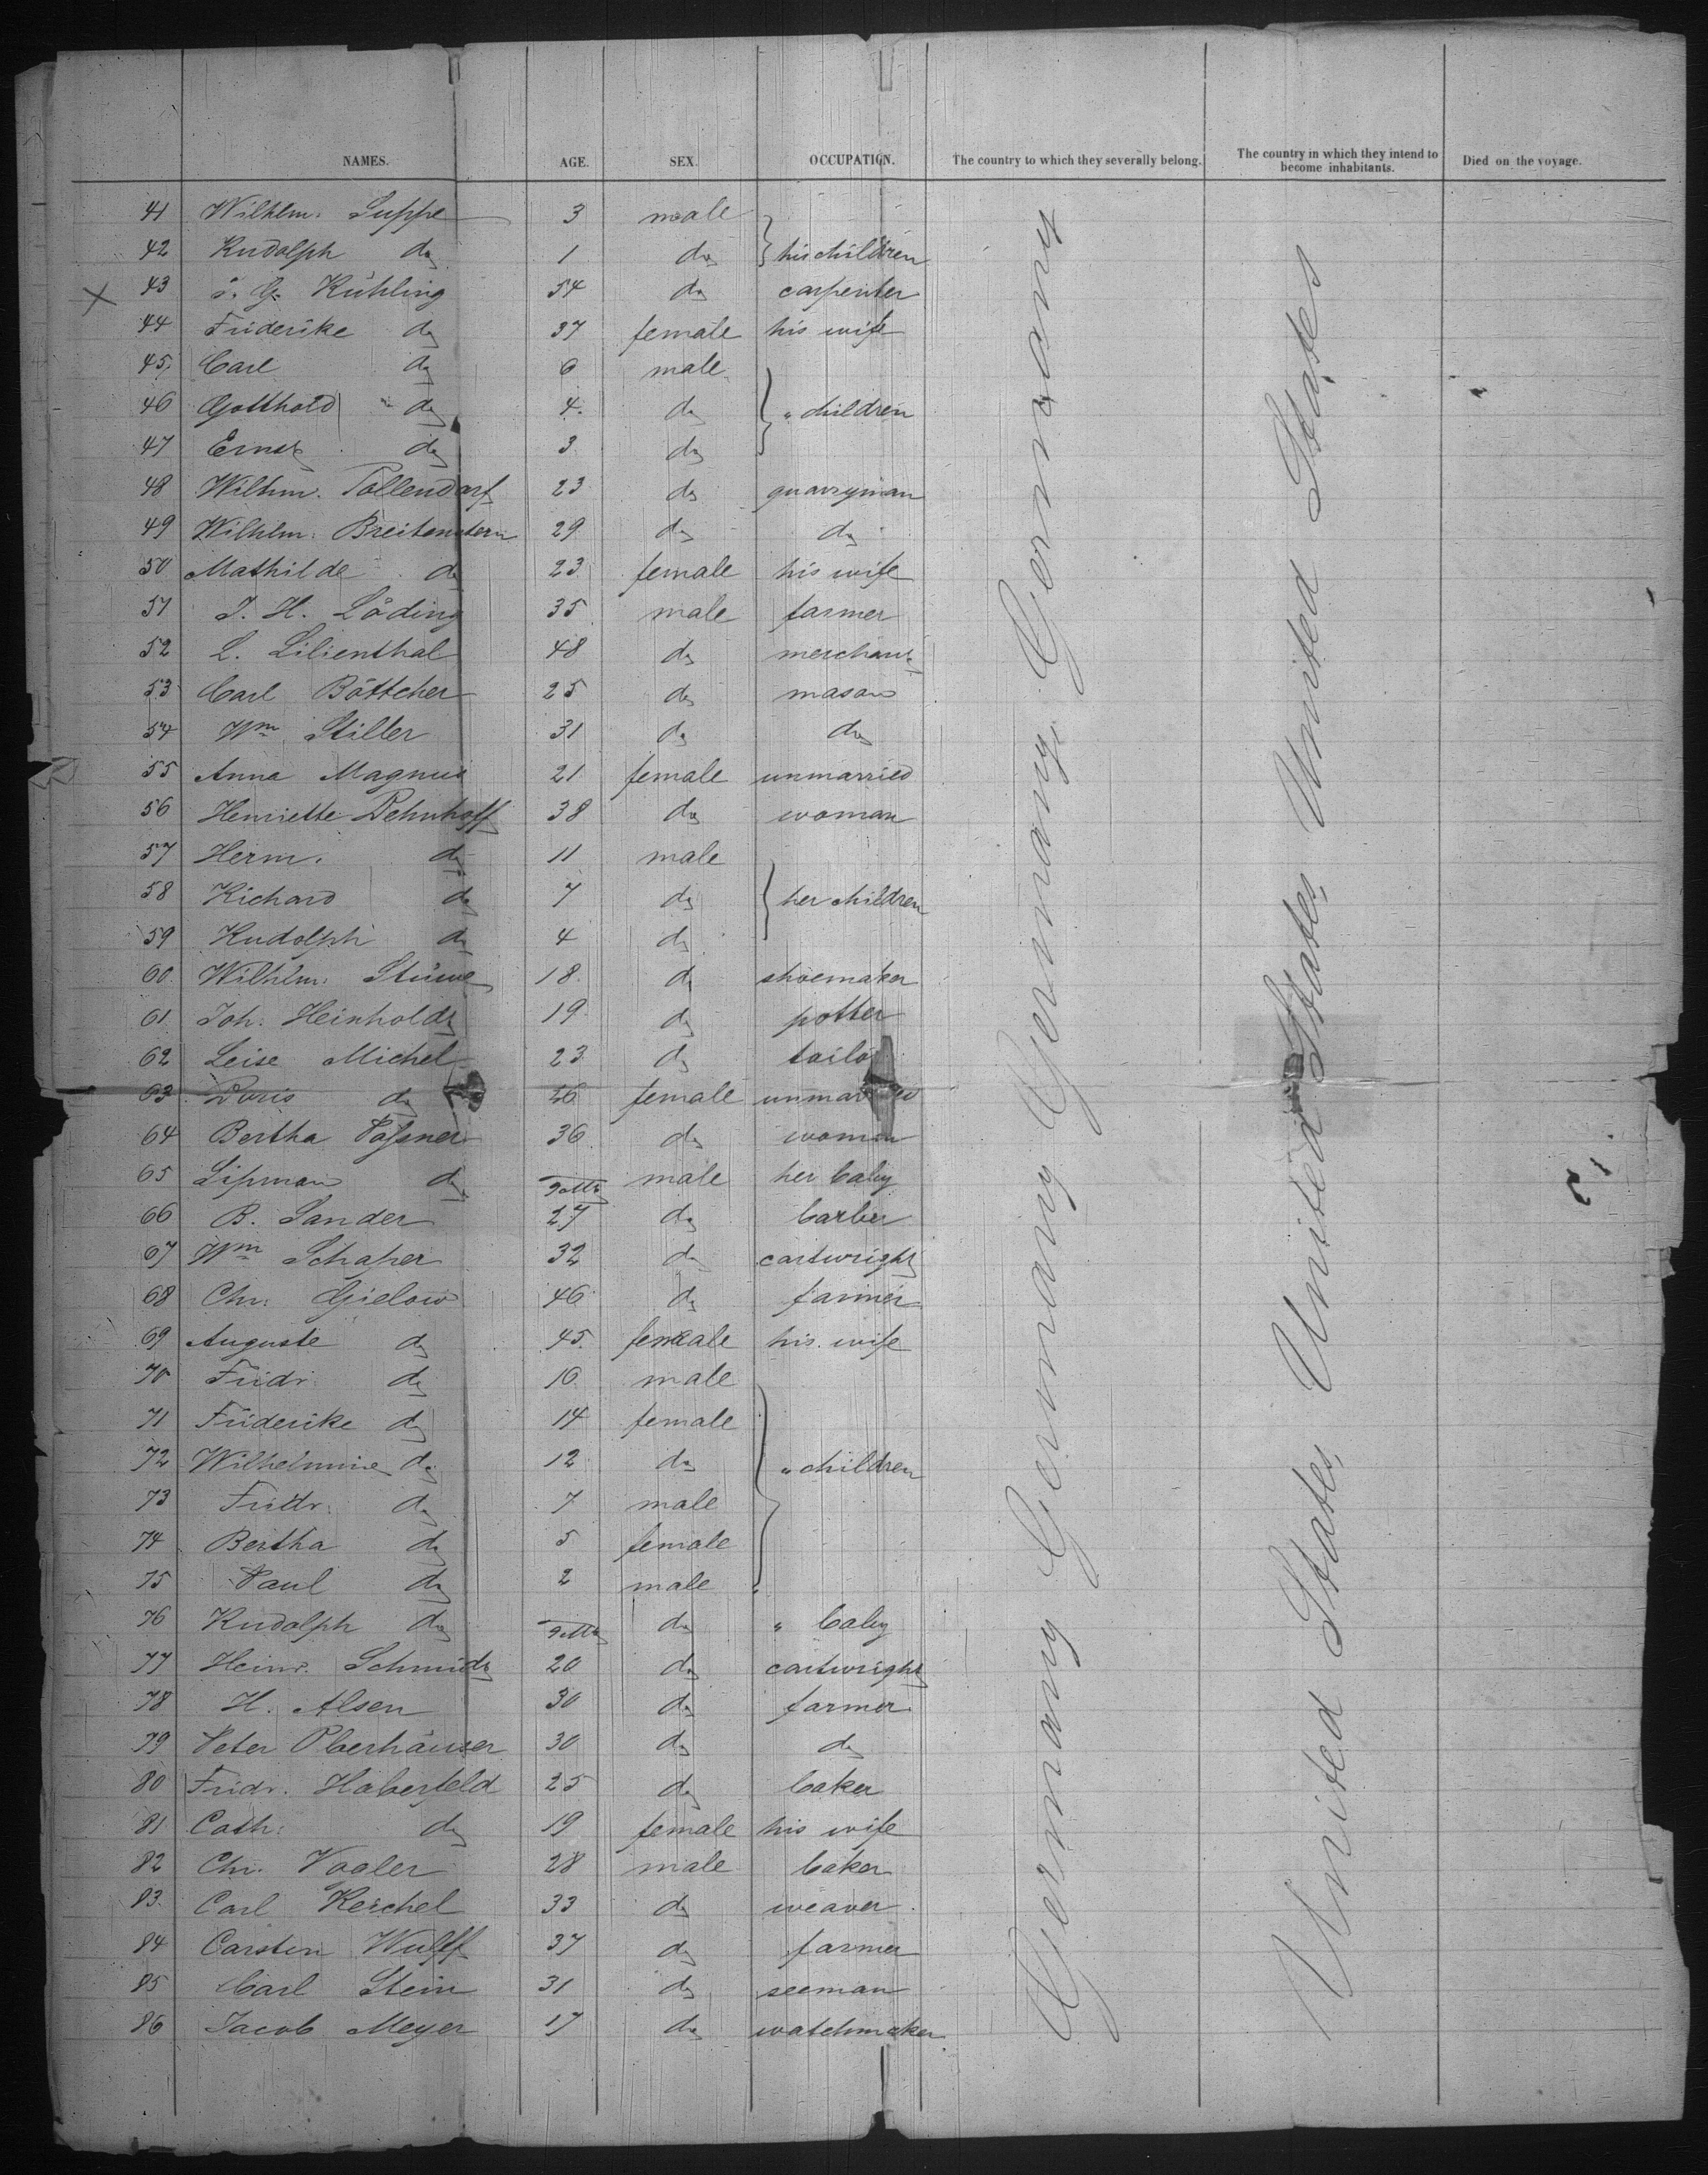 NAMES. AGE. SEX. OCCUPATION. The country to which they severally belong. The country in which they intend to become inhabitants. Died on the voyage.
41 Wilhlm. Suppe 3 male
42 Rudolph do 1 do } his children
43 G. Kühling 54 do carpenter
44 Friderike do 37 female his wife
45 Carl do 6 male
46 Gotthold do 4 do } " children
47 Ernst do 3 do
48 Wilhm. Tollendorf 23 do quarryman
49 Wilhlm. Breitenstern 29 do do
50 Mathilde do 23 female his wife
51 J. H. Löding 35 male farmer
52 L. Lilienthal 48 do merchant
53 Carl Böttcher 25 do mason
54 Wm Stiller 31 do do
55 Anna Magnus 21 female unmarried
56 Henriette Dehnhoff 38 do woman
57 Herm. do 11 male
58 Richard do 7 do } her children
59 Rudolph do 4 do
60 Wilhlm. Stüwe 18 do shoemaker
61 Joh. Heinholdt 19 do potter
62 Leise Michel 23 do tailor
63 Doris do 26 female unmarried
64 Bertha 36 do woman
65 Lipman do male her baby
66 B. Sander 27 do barber
67 Wm Schaper 32 do cartwright
68 Chr. Gielow 46 do farmer
69 Auguste do 45 female his wife
70 Fridr. do 16 male
71 Friderike do 14 female
72 Wilhelmine do 12 do } " children
73 Fridr. do 7 male
74 Bertha do 5 female
75 Paul do 2 male
76 Rudolph do do " baby
77 Heinr. Schmidt 20 do cartwright
78 H. Alsen 30 do farmer
79 Peter Oberhäuser 30 do do
80 Fridr. Haberfeld 25 do baker
81 Cath. do 19 female his wife
82 Chr. Vogler 28 male baker
83 Carl Kerchel 33 do weaver
84 Carsten Wulff 37 do farmer
85 Carl Stein 31 do seeman
86 Jacob Meyer 17 do watchmaker
Germany Germany Germany Germany
United States United States United States